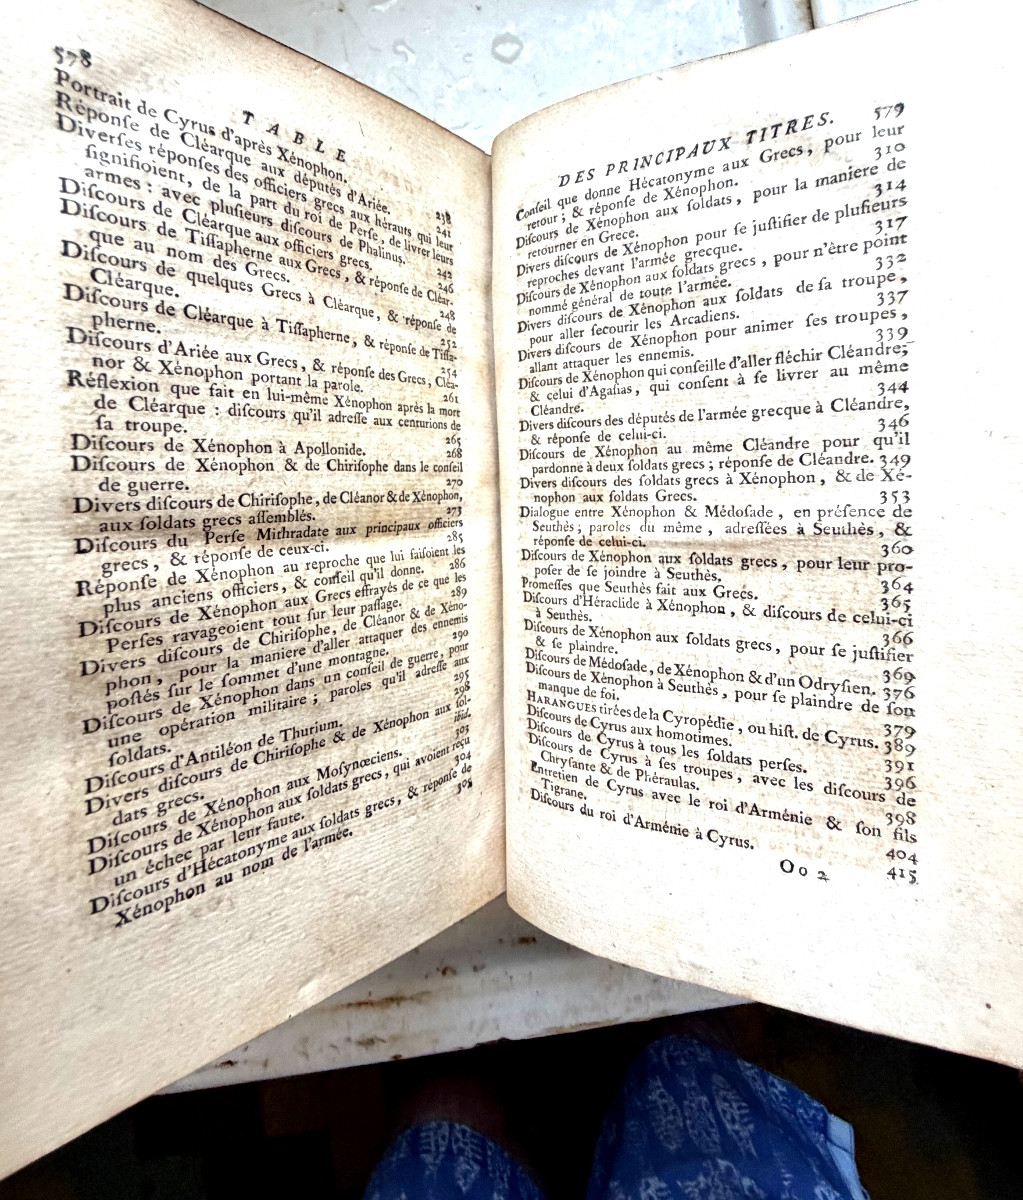 578
TABLE
Portrait de Cyrus d'après Xénophon. 238
Réponſe de Cléarque aux députés d'Ariée. 241
Diverſes réponſes des officiers grecs aux hérauts qui leur
ſignifioient, de la part du roi de Perſe, de livrer leurs
armes : avec pluſieurs diſcours de Phalinus. 242
Diſcours de Cléarque aux officiers grecs. 246
Diſcours de Tiſſapherne aux Grecs, & réponſe de Cléar-
que au nom des Grecs. 248
Diſcours de quelques Grecs à Cléarque, & réponſe de
Cléarque. 252
Diſcours de Cléarque à Tiſſapherne, & réponſe de Tiſſa-
pherne. 254
Diſcours d'Ariée aux Grecs, & réponſe des Grecs, Cléa-
nor & Xénophon portant la parole. 261
Réflexion que fait en lui-même Xénophon après la mort
de Cléarque : diſcours qu'il adreſſe aux centurions de
ſa troupe. 265
Diſcours de Xénophon à Apollonide. 268
Diſcours de Xénophon & de Chiriſophe dans le conſeil
de guerre. 270
Divers diſcours de Chiriſophe, de Cléanor & de Xénophon,
aux ſoldats grecs aſſemblés. 273
Diſcours du Perſe Mithradate aux principaux officiers
grecs, & réponſe de ceux-ci. 285
Réponſe de Xénophon au reproche que lui faiſoient les
plus anciens officiers, & conſeil qu'il donne. 286
Diſcours de Xénophon aux Grecs effrayés de ce que les
Perſes ravageoient tout ſur leur paſſage. 289
Divers diſcours de Chiriſophe, de Cléanor & de Xéno-
phon, pour la maniere d'aller attaquer des ennemis
poſtés ſur le ſommet d'une montagne. 290
Diſcours de Xénophon dans un conſeil de guerre, pour
une opération militaire ; paroles qu'il adreſſe aux
ſoldats. 295
Diſcours d'Antiléon de Thurium. 298
Divers diſcours de Chiriſophe & de Xénophon aux ſol-
dats grecs. ibid.
Diſcours de Xénophon aux Moſynœciens. 303
Diſcours de Xénophon aux ſoldats grecs, qui avoient reçu
un échec par leur faute. 304
Diſcours d'Hécatonyme aux ſoldats grecs, & réponſe de
Xénophon au nom de l'armée. 305
DES PRINCIPAUX TITRES. 579
Conſeil que donne Hécatonyme aux Grecs, pour leur
retour ; & réponſe de Xénophon. 310
Diſcours de Xénophon aux ſoldats, pour la maniere de
retourner en Grece. 314
Divers diſcours de Xénophon pour ſe juſtifier de pluſieurs
reproches devant l'armée grecque. 317
Diſcours de Xénophon aux ſoldats grecs, pour n'être point
nommé général de toute l'armée. 332
Divers diſcours de Xénophon aux ſoldats de ſa troupe,
pour aller ſecourir les Arcadiens. 337
Divers diſcours de Xénophon pour animer ſes troupes,
allant attaquer les ennemis. 339
Diſcours de Xénophon qui conſeille d'aller fléchir Cléandre;
& celui d'Agaſias, qui conſent à ſe livrer au même
Cléandre. 344
Divers diſcours des députés de l'armée grecque à Cléandre,
& réponſe de celui-ci. 346
Diſcours de Xénophon au même Cléandre pour qu'il
pardonne à deux ſoldats grecs ; réponſe de Cléandre. 349
Divers diſcours des ſoldats grecs à Xénophon, & de Xé-
nophon aux ſoldats Grecs. 353
Dialogue entre Xénophon & Médoſade, en préſence de
Seuthès ; paroles du même, adreſſées à Seuthès, &
réponſe de celui-ci. 360
Diſcours de Xénophon aux ſoldats grecs, pour leur pro-
poſer de ſe joindre à Seuthès. 364
Promeſſes que Seuthès fait aux Grecs. 365
Diſcours d'Héraclide à Xénophon, & diſcours de celui-ci
à Seuthès. 366
Diſcours de Xénophon aux ſoldats grecs, pour ſe juſtifier
& ſe plaindre. 369
Diſcours de Médoſade, de Xénophon & d'un Odryſien. 376
Diſcours de Xénophon à Seuthès, pour ſe plaindre de ſon
manque de foi. 379
HARANGUES tirées de la Cyropédie, ou hiſt. de Cyrus. 389
Diſcours de Cyrus aux homotimes. 391
Diſcours de Cyrus à tous les ſoldats perſes. 396
Diſcours de Cyrus à ſes troupes, avec les diſcours de
Chryſante & de Phéraulas. 398
Entretien de Cyrus avec le roi d'Arménie & ſon fils
Tigrane. 404
Diſcours du roi d'Arménie à Cyrus. 415
Oo 2